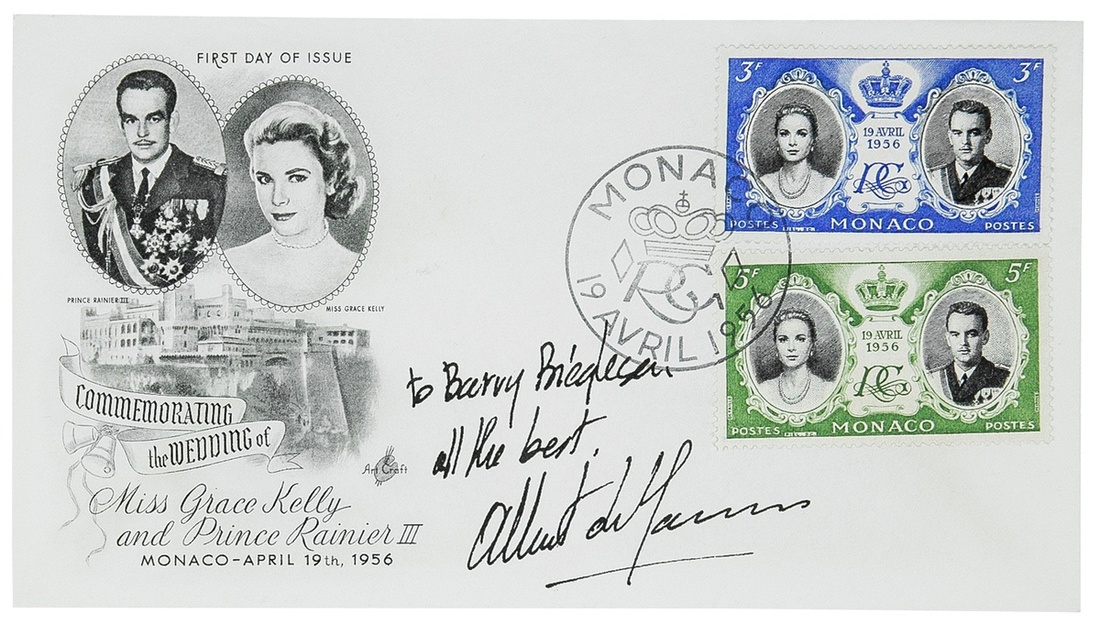 FIRST DAY OF ISSUE
PRINCE RAINIER III
MISS GRACE KELLY
COMMEMORATING
the WEDDING of
Art Craft
Miss Grace Kelly
and Prince Rainier III
MONACO-APRIL 19th, 1956
MONACO
RG
19 AVRIL 1956
3F 3F
19 AVRIL
1956
RG
POSTES MONACO POSTES
5F 5F
19 AVRIL
1956
RG
POSTES MONACO POSTES
to Barry
all the best,
Albert de Monaco